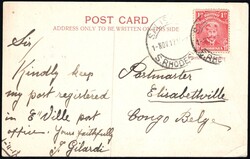 POST CARD
ADDRESS ONLY TO BE WRITTEN ON THIS SIDE
Sir
Kindly keep
my post registered
in E'Ville post
office.
Yours faithfully
J. Gilardi
Postmaster
Elisabethville
Congo Belge
S. RHODES